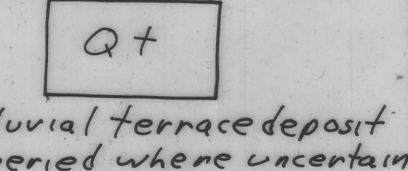 Qt
luvial terrace deposit
eried where uncertain